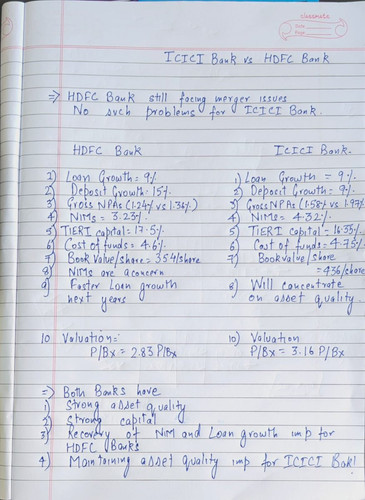 classmate
Date
Page
ICICI Bank vs HDFC Bank
=> HDFC Bank still facing merger issues
No such problems for ICICI Bank.
HDFC Bank
1) Loan Growth = 9%
2) Deposit Growth = 15%
3) Gross NPAs (1.24% vs 1.36%)
4) NIMs = 3.23%
5) TIER1 capital = 17.5%
6) Cost of funds = 4.6%
7) Book Value/share = 354/share
8) NIMs are a concern
9) Faster Loan growth
next years
10 Valuation =
P/Bx = 2.83 P/Bx
ICICI Bank.
1) Loan Growth = 9%
2) Deposit Growth = 9%
3) Gross NPAs (1.58% vs 1.97%)
4) NIMs = 4.32%
5) TIER1 capital = 16.35%
6) Cost of funds = 4.75%
7) Book value/share
= 436/share
8) Will concentrate
on asset quality.
10) Valuation
P/Bx = 3.16 P/Bx
=> Both Banks have
1) Strong asset quality
2) Strong capital
3) Recovery of NIM and Loan growth imp for
HDFC Banks
4) Maintaining asset quality imp for ICICI Bank!